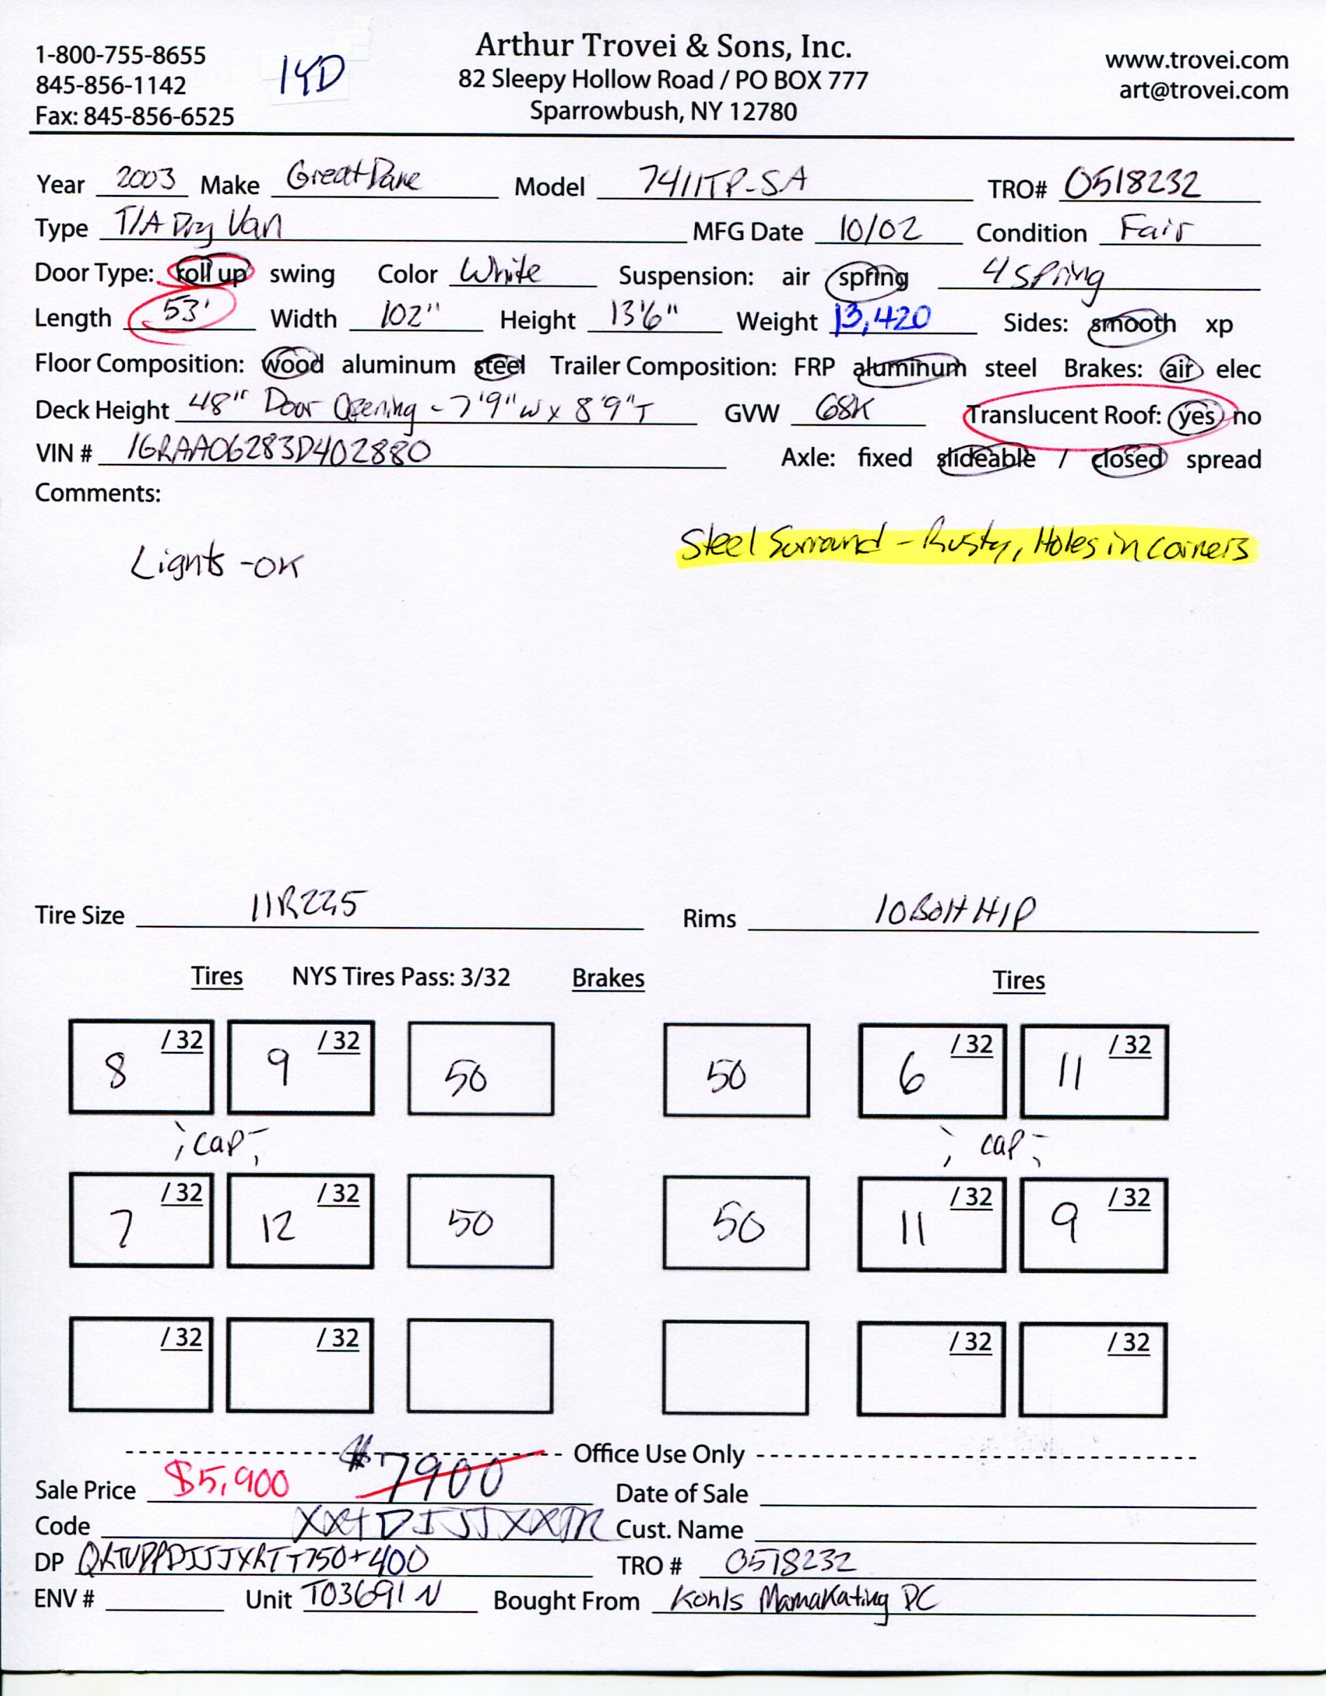 1-800-755-8655
845-856-1142
Fax: 845-856-6525
1YD
Arthur Trovei & Sons, Inc.
82 Sleepy Hollow Road / PO BOX 777
Sparrowbush, NY 12780
www.trovei.com
art@trovei.com
Year 2003 Make Great Dane Model 7411TP-SA TRO# 0518232
Type T/A Dry Van MFG Date 10/02 Condition Fair
Door Type: roll up swing Color White Suspension: air spring 4 Spring
Length 53' Width 102" Height 13'6" Weight 13,420 Sides: smooth xp
Floor Composition: wood aluminum steel Trailer Composition: FRP aluminum steel Brakes: air elec
Deck Height 48" Door Opening - 7'9"W x 8'9"T GVW 68K Translucent Roof: yes no
VIN # 1GRAA06283D402880 Axle: fixed slideable / closed spread
Comments:
Steel Surround - Rusty, Holes in corners
Lights - OK
Tire Size 11R22.5 Rims 10 Bolt H/P
Tires NYS Tires Pass: 3/32 Brakes Tires
8 /32 9 /32 50 50 6 /32 11 /32
cap cap
7 /32 12 /32 50 50 11 /32 9 /32
/32 /32 /32 /32
Office Use Only
Sale Price $5,900 $7900 Date of Sale
Code Cust. Name
DP TRO # 0518232
ENV # Unit T03691N Bought From Kohls Mamakating DC